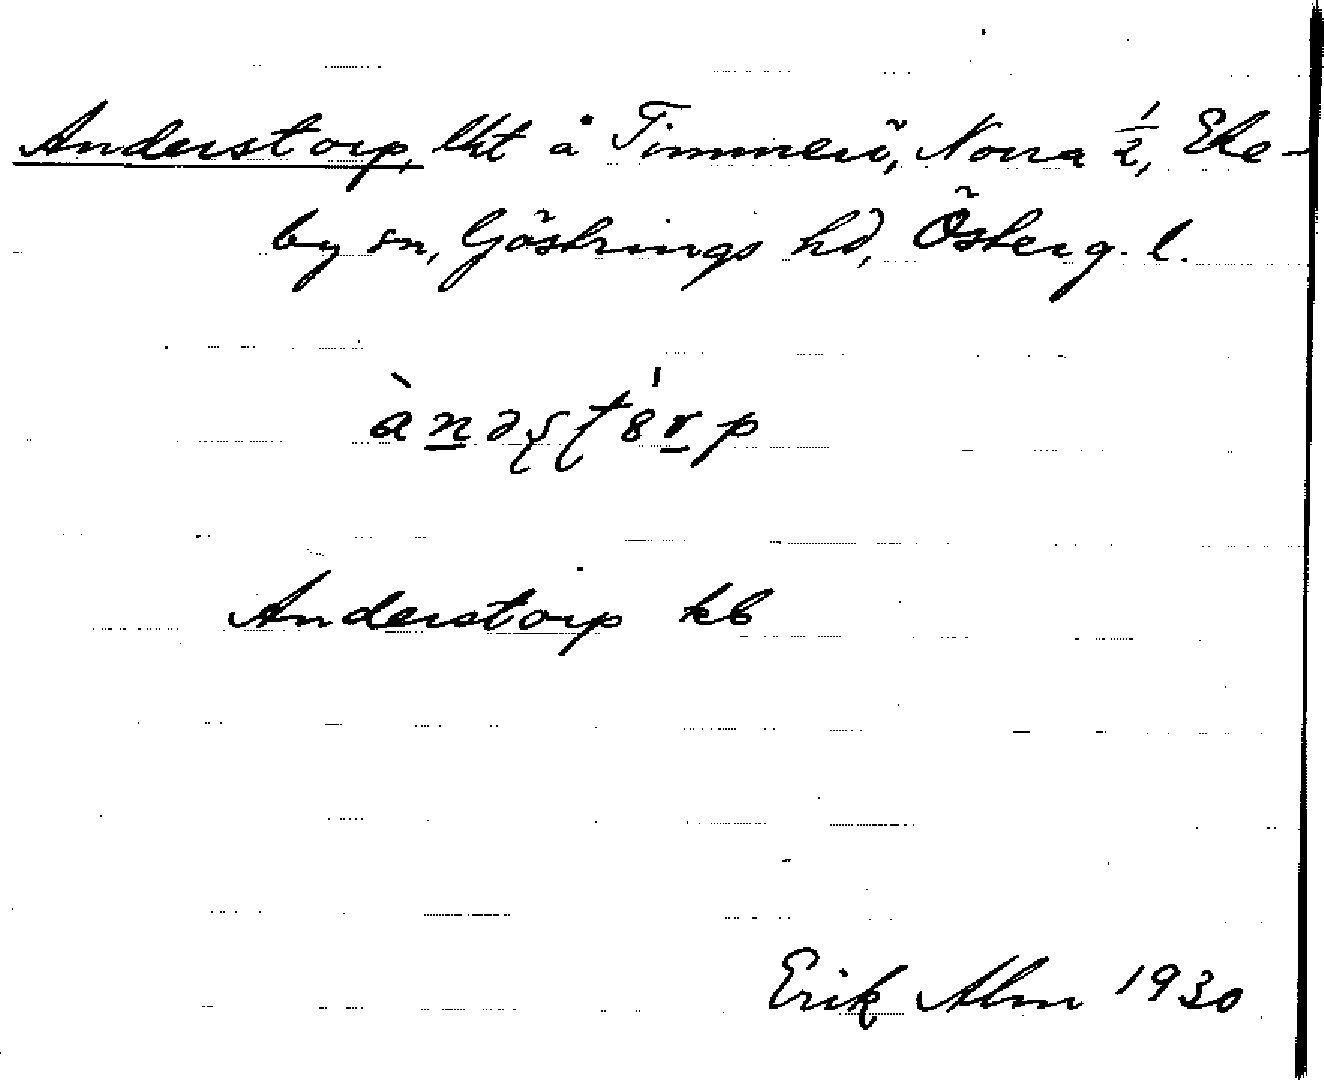 Anderstorp, lht å Timmerö, Norra 1/2, Eke-
by sn, Göstrings hd, Österg. l.
Anderstorp kb
Erik Alm 1930